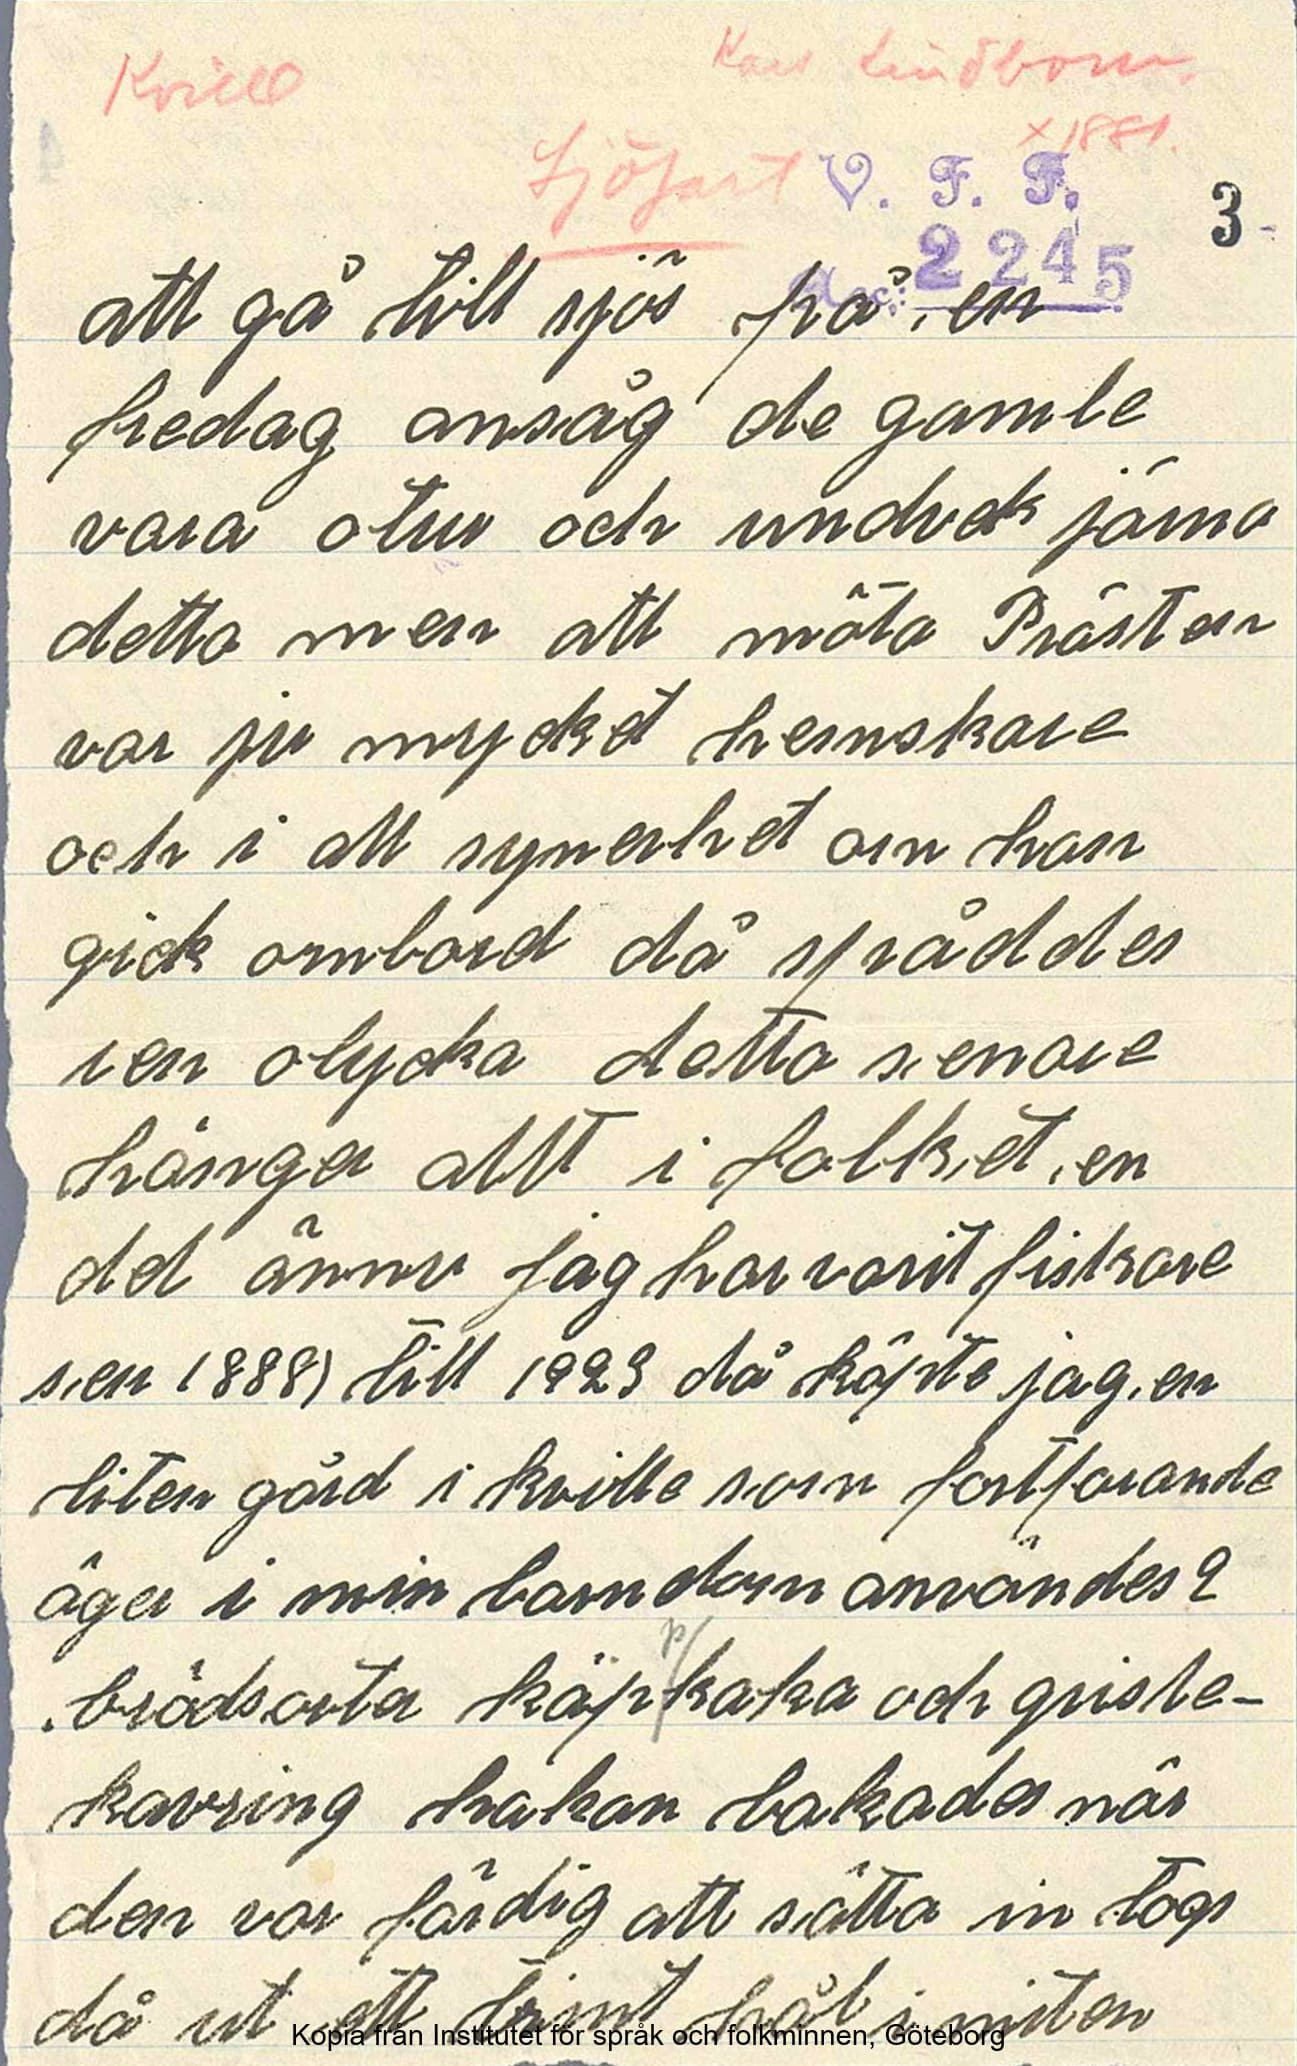 Kville
Karl Lindbom.
x 1881.
Sjöfart
V. F. F.
Acc: 2245
3
att gå till sjös på en
fredag ansåg de gamle
vara otur och undvek järna
detta men att möta Prästen
var ju mycket hemskare
och i all synerhet om han
gick ombord då spåddes
en olycka detta senare
hänger allt i folket en
del ännu jag har varit fiskare
sen 1888) till 1923 då köpte jag en
liten gård i kville som fortfarande
äger i min barndom användes 2
brödsorter käpkaka och grisle-
p/
kavring kakan bakades när
den var färdig att sätta in togs
då ut ett trint hål i miten
Kopia från Institutet för språk och folkminnen, Göteborg